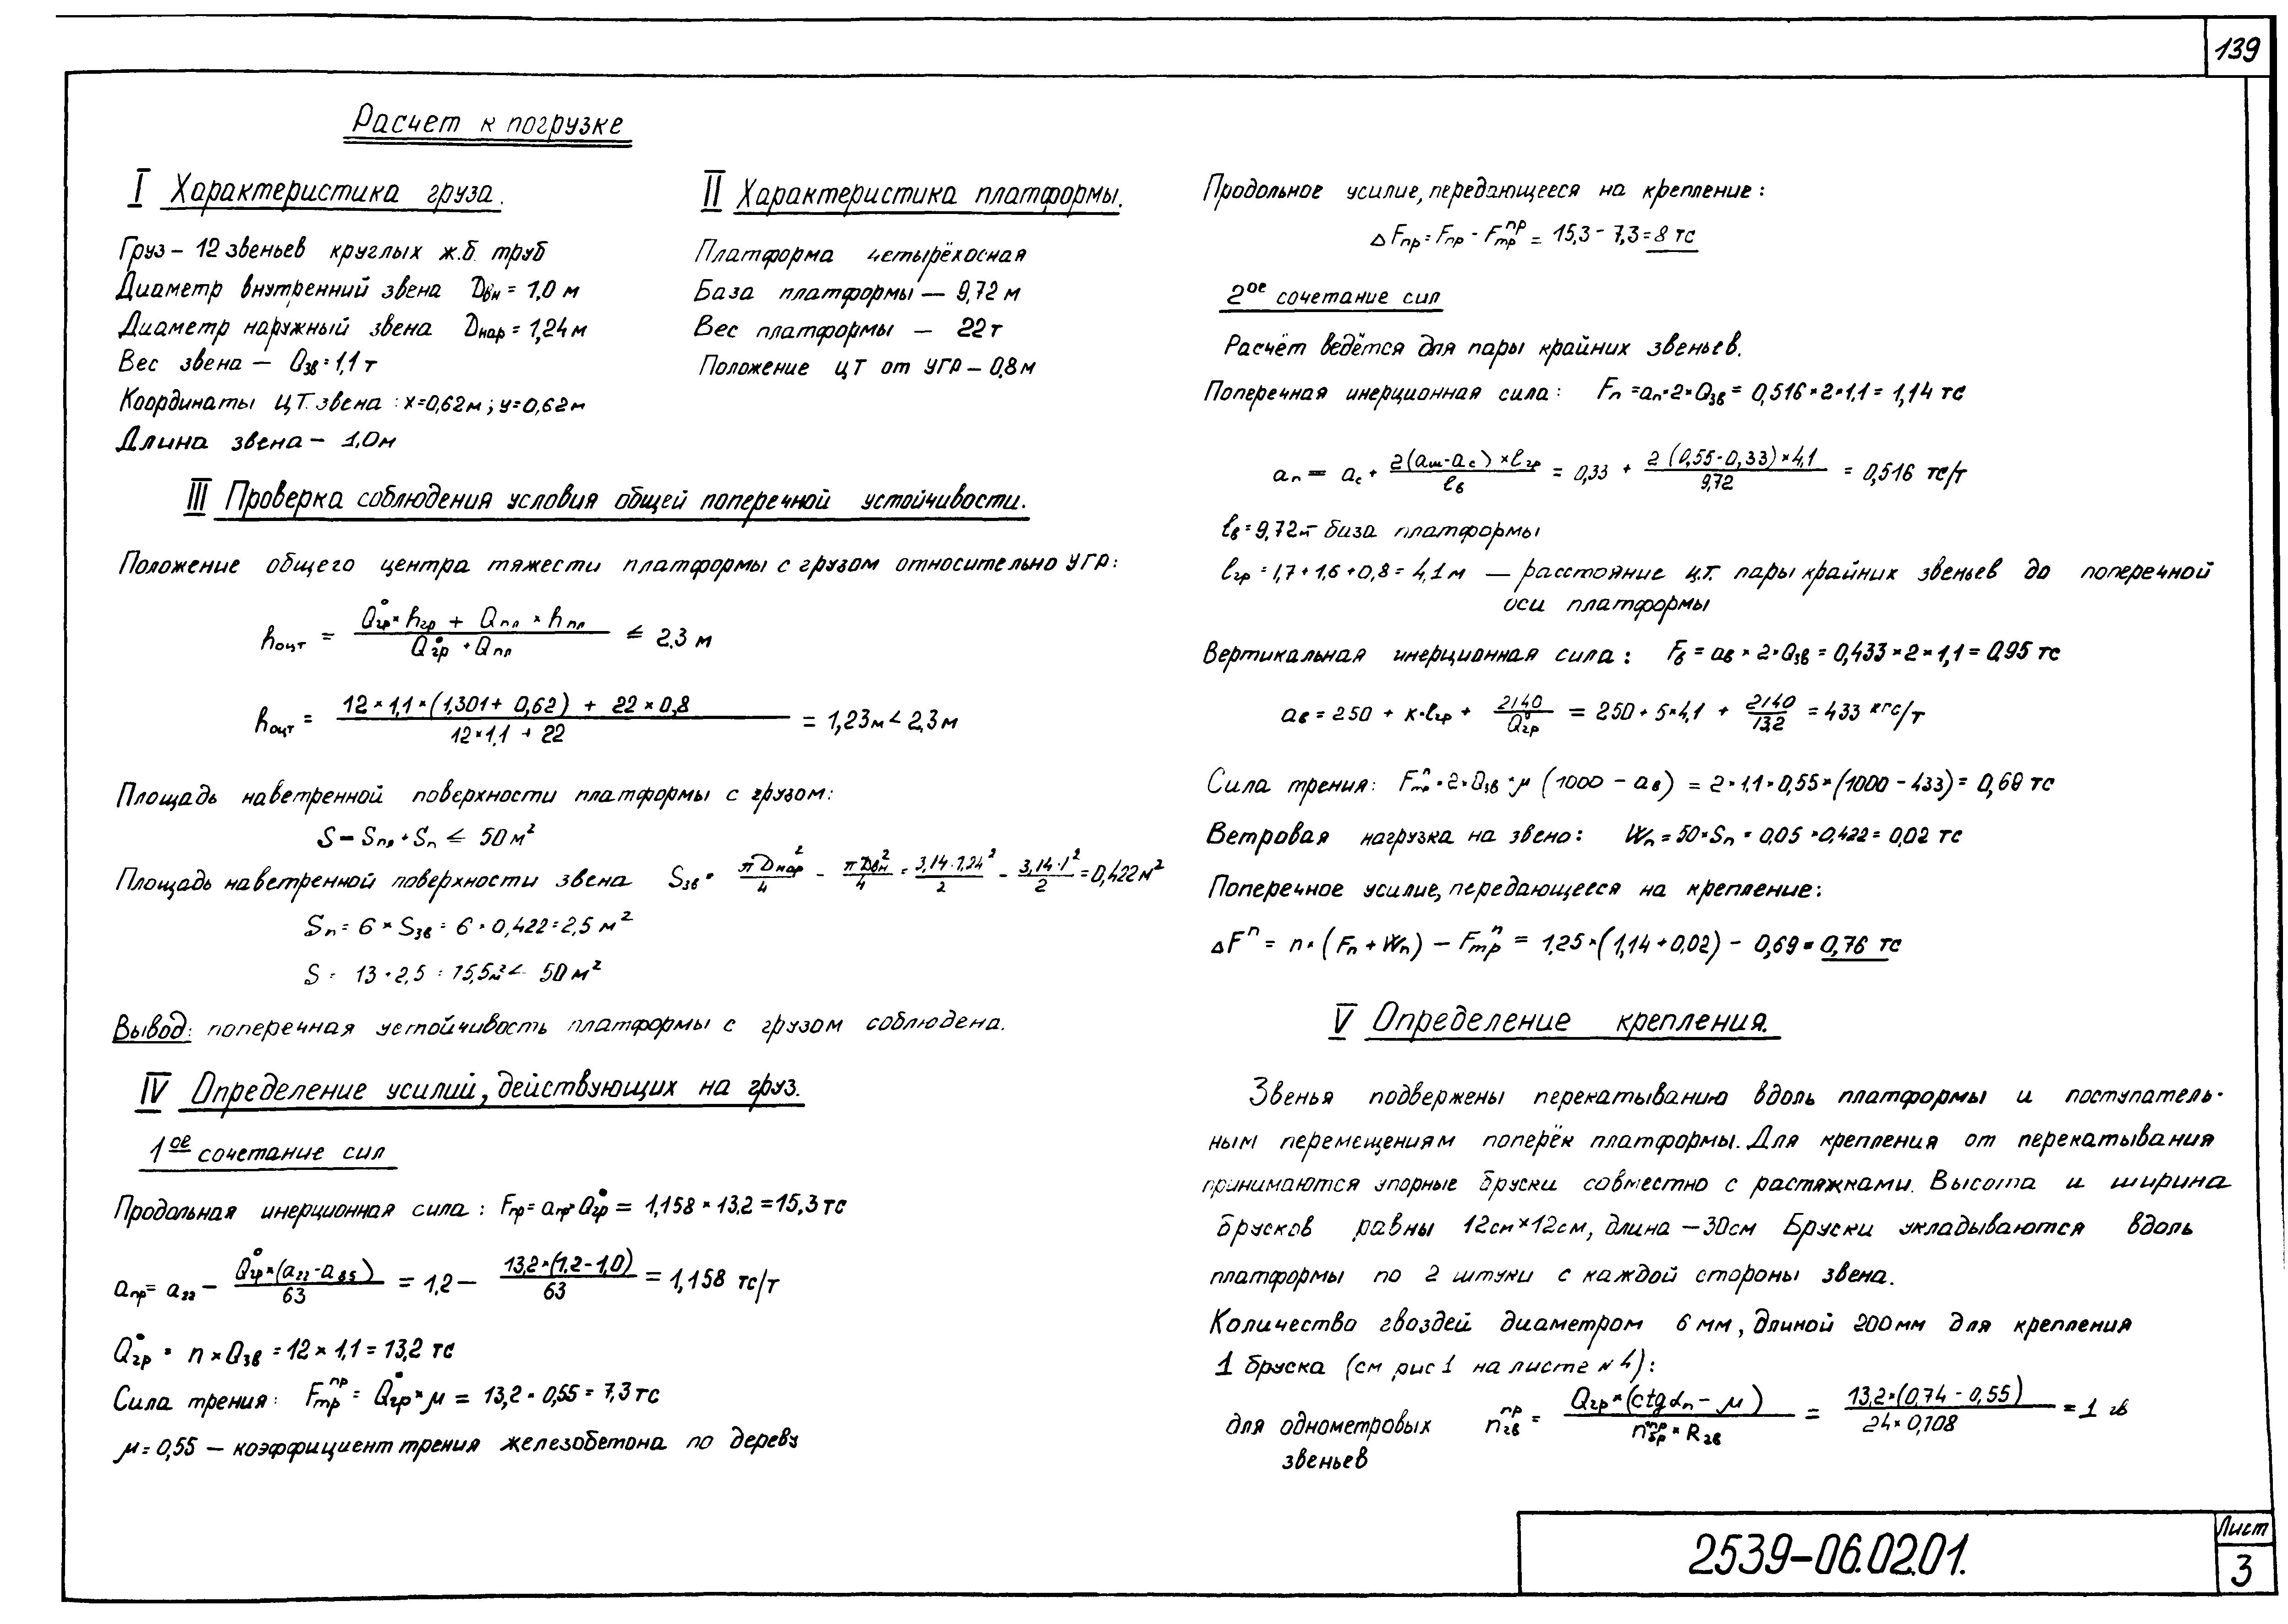 139
Расчет к погрузке
I Характеристика груза.
Груз – 12 звеньев круглых ж.б. труб
Диаметр внутренний звена Dвн = 1,0 м
Диаметр наружный звена Dнар = 1,24 м
Вес звена – Qзв = 1,1 т
Координаты ЦТ звена : x=0,62м ; y=0,62м
Длина звена – 1,0м
II Характеристика платформы.
Платформа четырёхосная
База платформы – 9,72 м
Вес платформы – 22 т
Положение ЦТ от УГР – 0,8 м
III Проверка соблюдения условия общей поперечной устойчивости.
Положение общего центра тяжести платформы с грузом относительно УГР:
hоцт = (Q°гр × hгр + Qпл × hпл) / (Q°гр + Qпл) ≤ 2,3 м
hоцт = (12 × 1,1 × (1,301 + 0,62) + 22 × 0,8) / (12 × 1,1 + 22) = 1,23м < 2,3м
Площадь наветренной поверхности платформы с грузом:
S = Sпл + Sп ≤ 50 м²
Площадь наветренной поверхности звена Sзв = πDнар²/4 – πDвн²/4 = 3,14·1,24²/2 – 3,14·1²/2 = 0,422 м²
Sп = 6 × Sзв = 6 · 0,422 = 2,5 м²
S = 13 + 2,5 = 15,5м² < 50 м²
Вывод: поперечная устойчивость платформы с грузом соблюдена.
IV Определение усилий, действующих на груз.
1ое сочетание сил
Продольная инерционная сила : Fпр = aпр × Q°гр = 1,158 × 13,2 = 15,3 тс
aпр = a22 – Q°гр × (a22 – a85) / 63 = 1,2 – 13,2 × (1,2 – 1,0) / 63 = 1,158 тс/т
Q°гр = n × Qзв = 12 × 1,1 = 13,2 тс
Сила трения: Fтрпр = Q°гр × μ = 13,2 × 0,55 = 7,3 тс
μ = 0,55 – коэффициент трения железобетона по дереву
Продольное усилие, передающееся на крепление :
ΔFпр = Fпр – Fтрпр = 15,3 – 7,3 = 8 тс
2ое сочетание сил
Расчёт ведётся для пары крайних звеньев.
Поперечная инерционная сила : Fп = aп × 2 × Qзв = 0,516 × 2 × 1,1 = 1,14 тс
aп = aс + 2(aш - aс) × ℓгр / ℓв = 0,33 + 2 (0,55 - 0,33) × 4,1 / 9,72 = 0,516 тс/т
ℓв = 9,72м – база платформы
ℓгр = 1,7 + 1,6 + 0,8 = 4,1 м – расстояние ц.т. пары крайних звеньев до поперечной
оси платформы
Вертикальная инерционная сила : Fв = aв × 2 × Qзв = 0,433 × 2 × 1,1 = 0,95 тс
aв = 250 + к·ℓгр + 2140 / Q°гр = 250 + 5×4,1 + 2140 / 13,2 = 433 кгс/т
Сила трения: Fтрп = 2 × Qзв × μ (1000 – aв) = 2 × 1,1 × 0,55 × (1000 – 433) = 0,69 тс
Ветровая нагрузка на звено : Wп = 50 × Sп = 0,05 × 0,422 = 0,02 тс
Поперечное усилие, передающееся на крепление :
ΔFп = n × (Fп + Wп) – Fтрп = 1,25 × (1,14 + 0,02) – 0,69 = 0,76 тс
V Определение крепления.
Звенья подвержены перекатыванию вдоль платформы и поступатель-
ным перемещениям поперёк платформы. Для крепления от перекатывания
принимаются упорные бруски совместно с растяжками. Высота и ширина
брусков равны 12см×12см, длина – 30см Бруски укладываются вдоль
платформы по 2 штуки с каждой стороны звена.
Количество гвоздей диаметром 6 мм, длиной 200мм для крепления
1 бруска (см рис 1 на листе N 4) :
для однометровых nгвпр = Qгр × (ctg αп – μ) / (nбрпр × Rгв) = 13,2 × (0,74 – 0,55) / (24 × 0,108) = 1 гв
звеньев
2539-06.02.01.
Лист
3